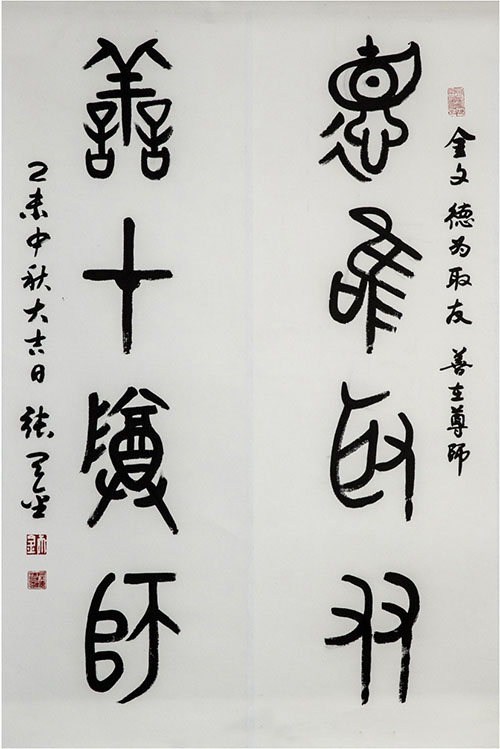 金文 德为取友 善在尊師
德为取友
善在尊師
乙未中秋大吉日 張